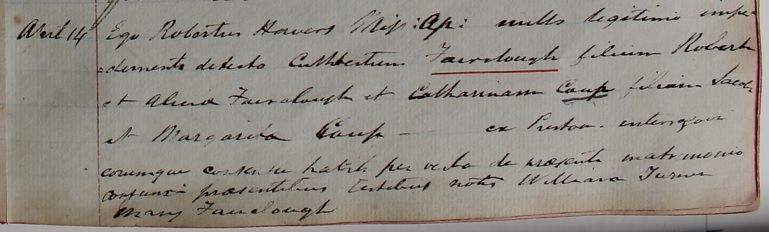 April 14 Ego Robertus Howers Miss: Ap: nullo legitimo impe
=dimento detecto Cuthbertum Fairclough filium Roberti
et Alicia Fairclough et Catharinam Coup filiam Jacobi
et Margarita Coup — ex Preston. interrogavi
eorumque consensu habito per verba de præsenti matrimonio
conjunxi præsentibus testibus notis William Turner
Mary Fairclough